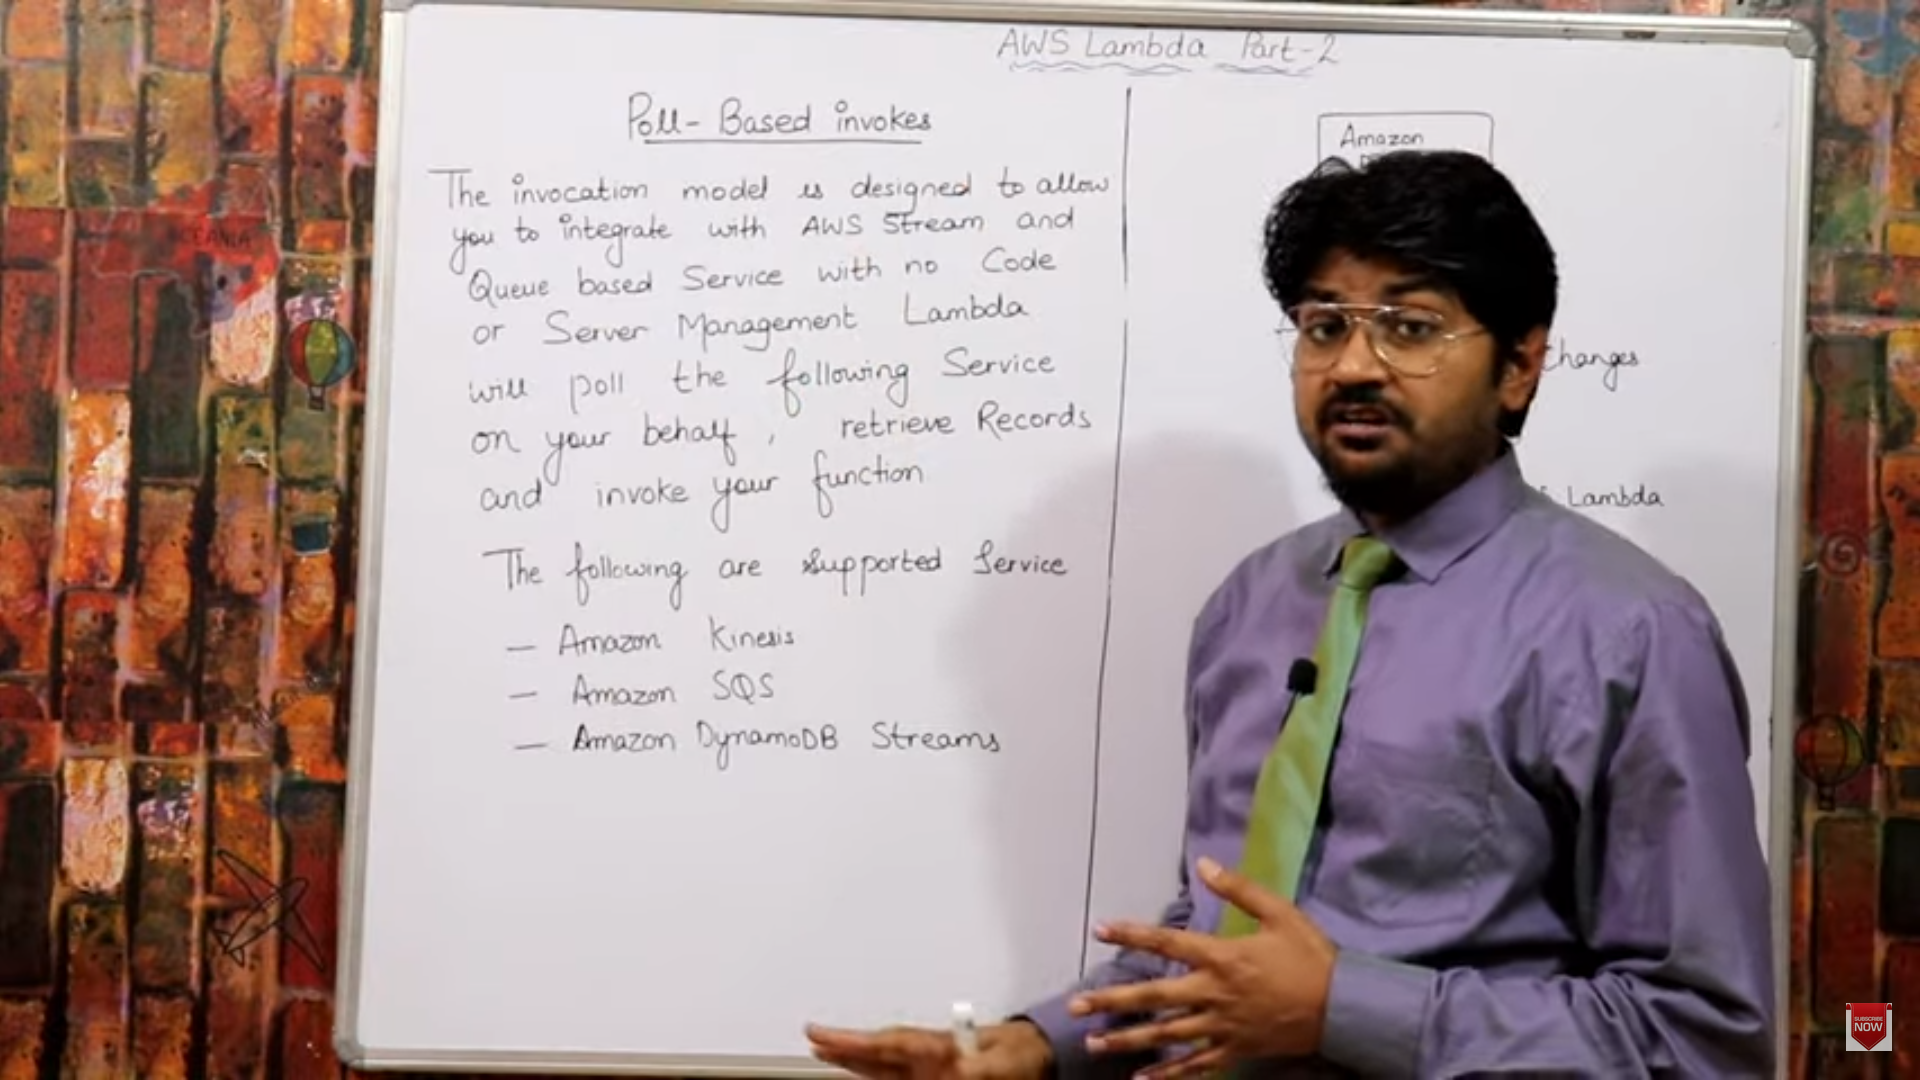 AWS Lambda Part-2
Poll-Based invokes
The invocation model is designed to allow
you to integrate with AWS Stream and
Queue based Service with no Code
or Server Management Lambda
will poll the following Service
on your behalf, retrieve Records
and invoke your function
The following are Supported Service
— Amazon Kinesis
— Amazon SQS
— Amazon DynamoDB Streams
Amazon
Changes
Lambda
OCEANIA
SUBSCRIBE
NOW